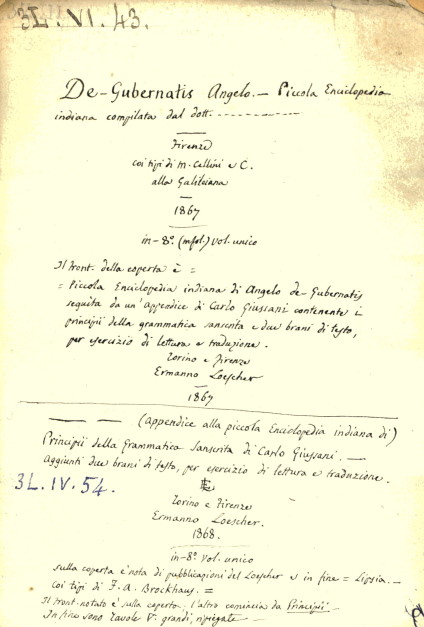 3L. VI. 43.
De-Gubernatis Angelo. — Piccola Enciclopedia
indiana compilata dal dott. ----------
Firenze
coi tipi di M. Cellini e C.
alla Galileiana
1867
in-8º. (mgl.) vol. unico
Il front. della coperta è =
= Piccola Enciclopedia indiana di Angelo de-Gubernatis
seguita da un'appendice di Carlo Giussani contenente i
principii della grammatica sanscrita e due brani di testo,
per esercizio di lettura e traduzione.
Torino e Firenze
Ermanno Loescher
1867
— — (appendice alla piccola Enciclopedia indiana di)
Principii della Grammatica Sanscrita di Carlo Giussani. —
Aggiunti due brani di testo, per esercizio di lettura e traduzione.
3L. IV. 54.
Torino e Firenze
Ermanno Loescher.
1868.
in-8º vol. unico
sulla coperta è nota di pubblicazioni del Loescher e in fine = Lipsia. —
coi tipi di F. A. Brockhaus. =
Il front-notato è sulla coperta; l'altro comincia da Principii
In fine sono Tavole V: grandi, ripiegate —